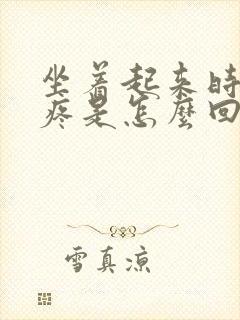 坐着起来时
疼是怎麼回
雪真凉